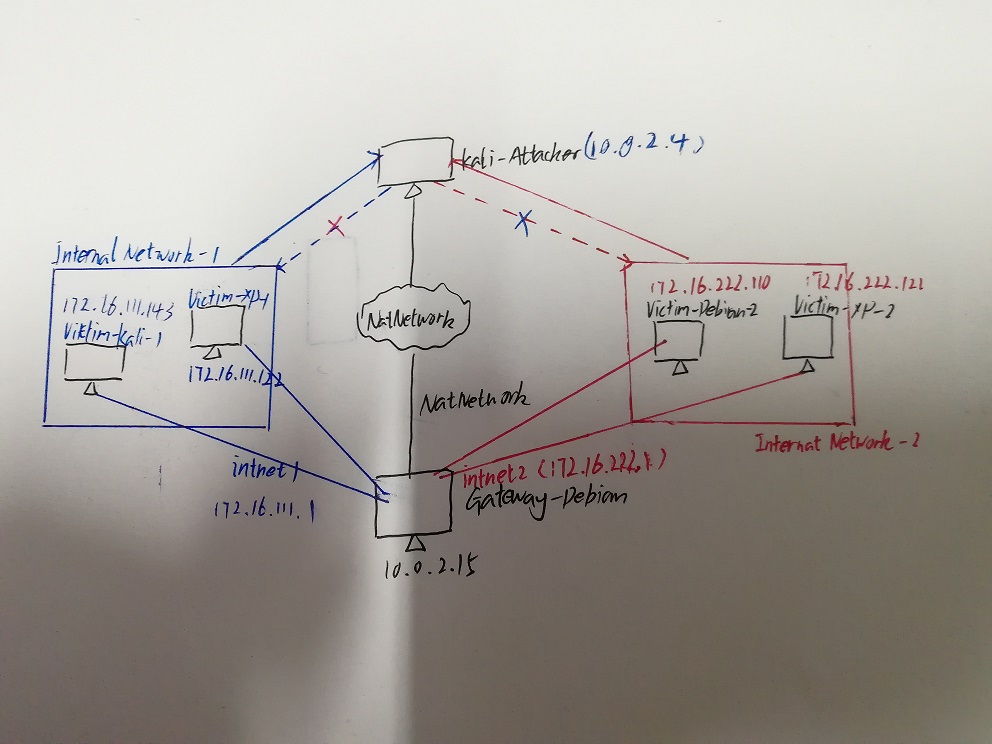 Kali-Attacker (10.0.2.4)
Internal Network-1
172.16.111.143
Victim-Kali-1
Victim-XP-1
172.16.111.122
NatNetwork
NatNetwork
172.16.222.110
Victim-Debian-2
172.16.222.121
Victim-XP-2
Internat Network-2
intnet1
172.16.111.1
intnet2 (172.16.222.1)
Gateway-Debian
10.0.2.15